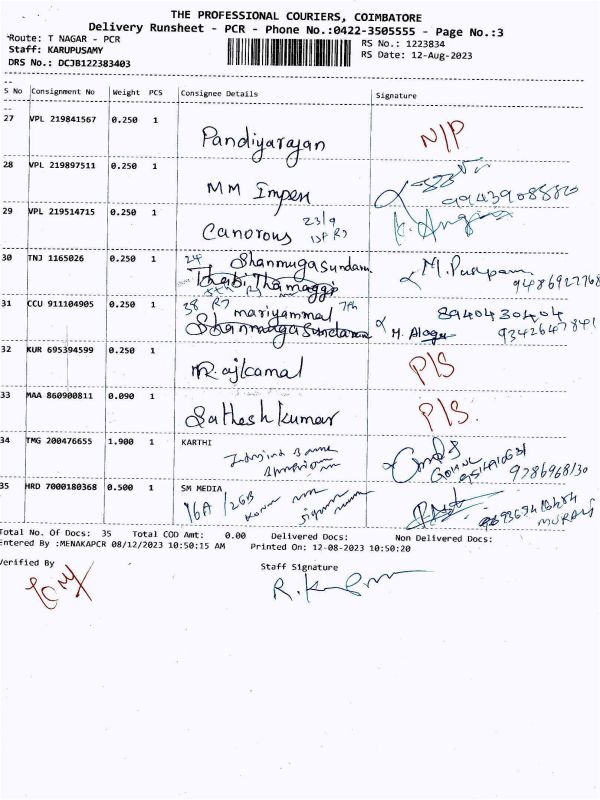 THE PROFESSIONAL COURIERS, COIMBATORE
Delivery Runsheet - PCR - Phone No.:0422-3505555 - Page No.:3
Route: T NAGAR - PCR
RS No.: 1223834
Staff: KARUPUSAMY
RS Date: 12-Aug-2023
DRS No.: DCJB122383403
S No Consignment No Weight PCS Consignee Details Signature
27 VPL 219841567 0.250 1 Pandiyarajan N/P
28 VPL 219897511 0.250 1 MM Impex
29 VPL 219514715 0.250 1 Canorous 23/9
30 TNJ 1165026 0.250 1 24 Shanmugasundam M. Puspam
31 CCU 911104905 0.250 1 38 mariyammal 7th 8940430404
Shanmugasundaram M. Alagu
32 KUR 695394599 0.250 1 Rajkamal P/S
33 MAA 860900811 0.090 1 Satheshkumar P/S.
34 TMG 200476655 1.900 1 KARTHI
9786968130
35 HRD 7000180368 0.500 1 SM MEDIA
16A/26B
MURALI
Total No. Of Docs: 35 Total COD Amt: 0.00 Delivered Docs: Non Delivered Docs:
Entered By :MENAKAPCR 08/12/2023 10:50:15 AM Printed On: 12-08-2023 10:50:20
Verified By Staff Signature